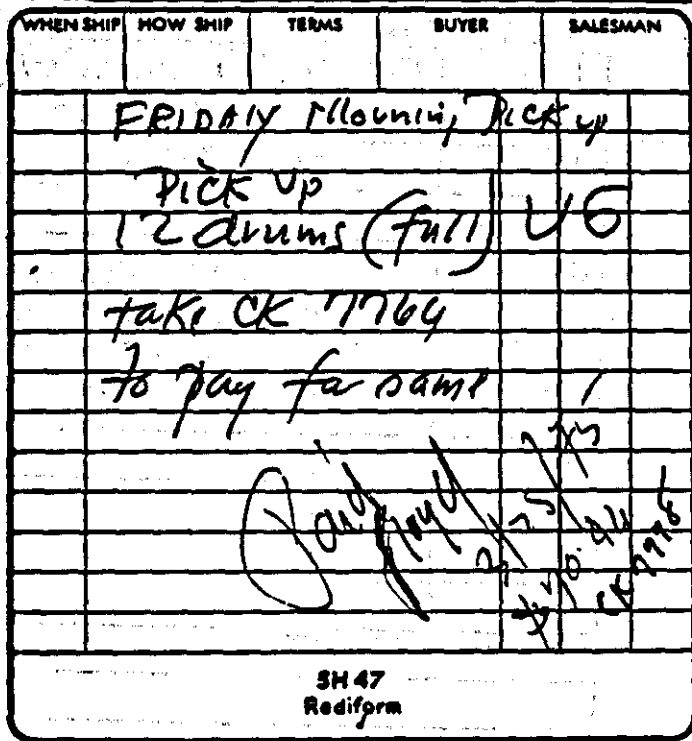 WHEN SHIP HOW SHIP TERMS BUYER SALESMAN
FRIDAY Mournin, Pick up
Pick up
12 drums (full) UG
take CK 7764
to pay for same
Paid
CK
SH 47
Rediform